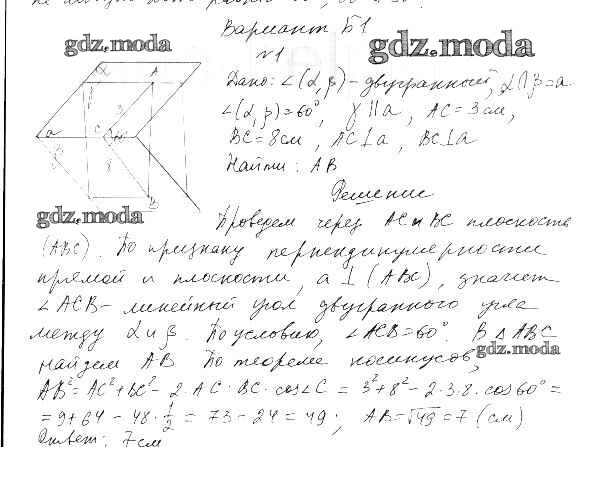 Вариант Б1
gdz.moda
gdz.moda
№1
Дано: ∠(α, β) - двугранный, α∩β=a
∠(α, β)=60°, γ || a, AC=3см,
BC=8см, AC⊥a, BC⊥a
Найти: AB
Решение
gdz.moda
Проведем через AC и BC плоскость
(ABC). По признаку перпендикулярности
прямой и плоскости, a ⊥ (ABC), значит
∠ACB - линейный угол двугранного угла
между α и β. По условию, ∠ACB=60°. В △ABC
найдем AB. По теореме косинусов,
gdz.moda
AB²=AC²+BC²-2·AC·BC·cos∠C = 3²+8²-2·3·8·cos60°=
=9+64-48·1/2=73-24=49; AB=√49=7 (см)
Ответ: 7см